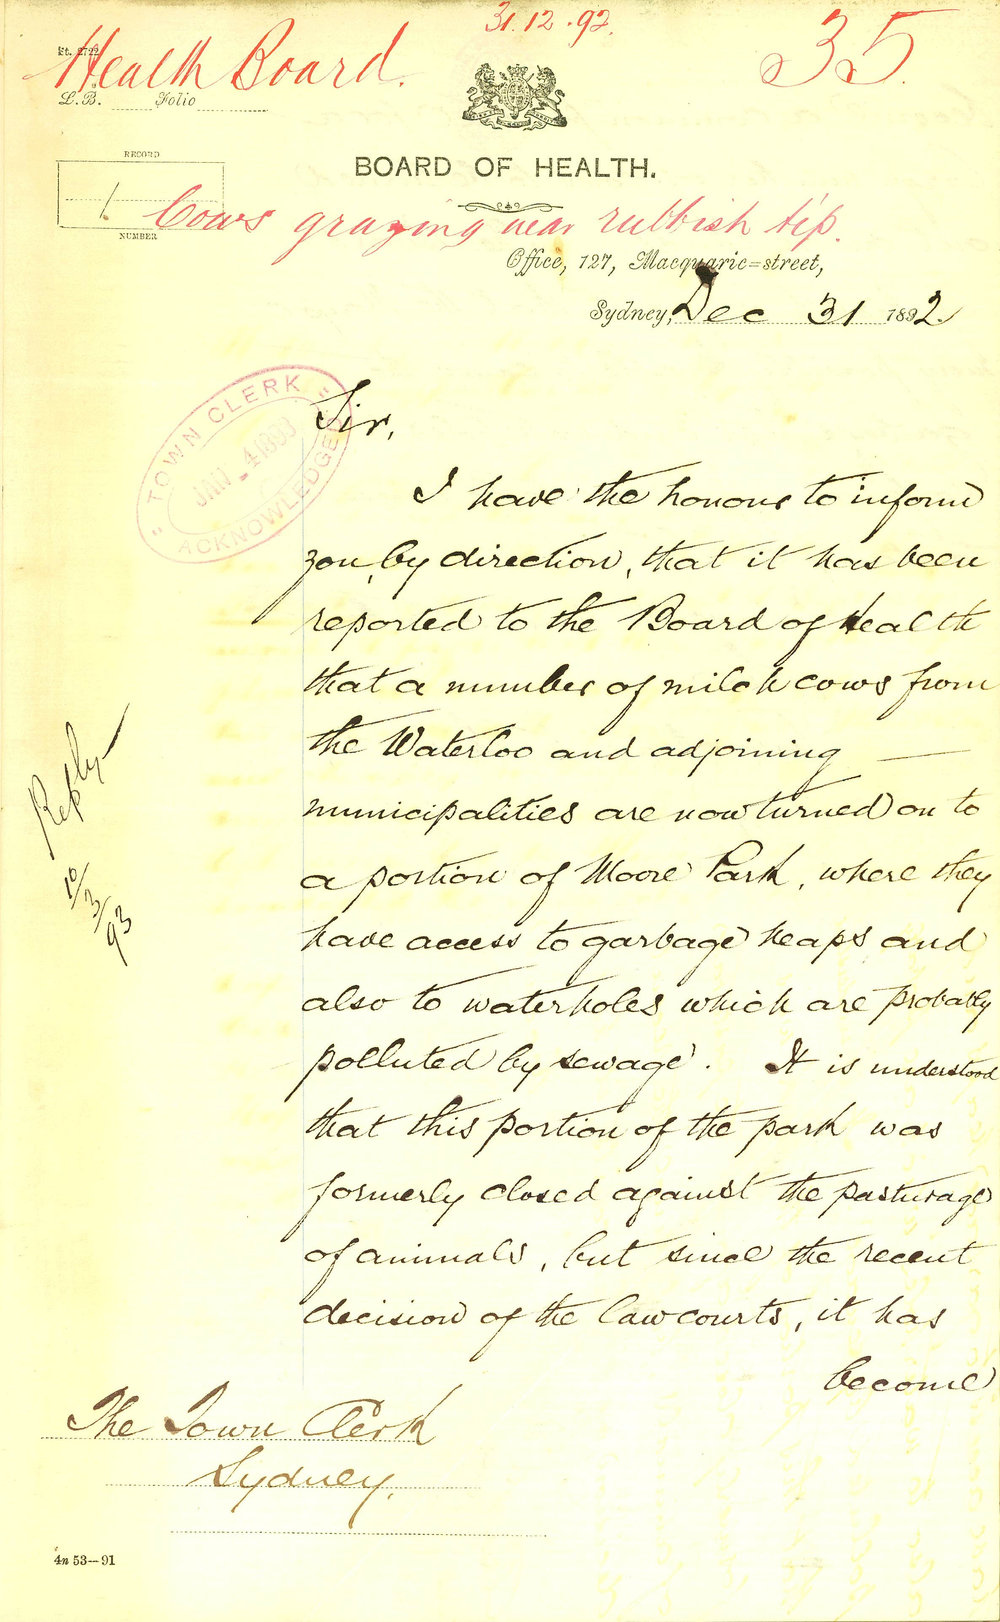 31.12.92.
35.
Health Board.
L.B. Folio
BOARD OF HEALTH.
RECORD
1.
NUMBER
Cows grazing near rubbish tip.
Office, 127, Macquarie=street,
Sydney, Dec 31 1892.
"TOWN CLERK"
JAN. 4 1893
ACKNOWLEDGED
Sir,
I have the honour to inform
you, by direction, that it has been
reported to the Board of Health
that a number of milch cows from
the Waterloo and adjoining —
municipalities are now turned on to
a portion of Moore Park, where they
have access to garbage heaps and
also to waterholes which are probably
polluted by sewage. It is understood
that this portion of the park was
formerly closed against the pasturage
of animals, but since the recent
decision of the law courts, it has
become
Reply
10/3/93
The Town Clerk
Sydney.
4n 53—91